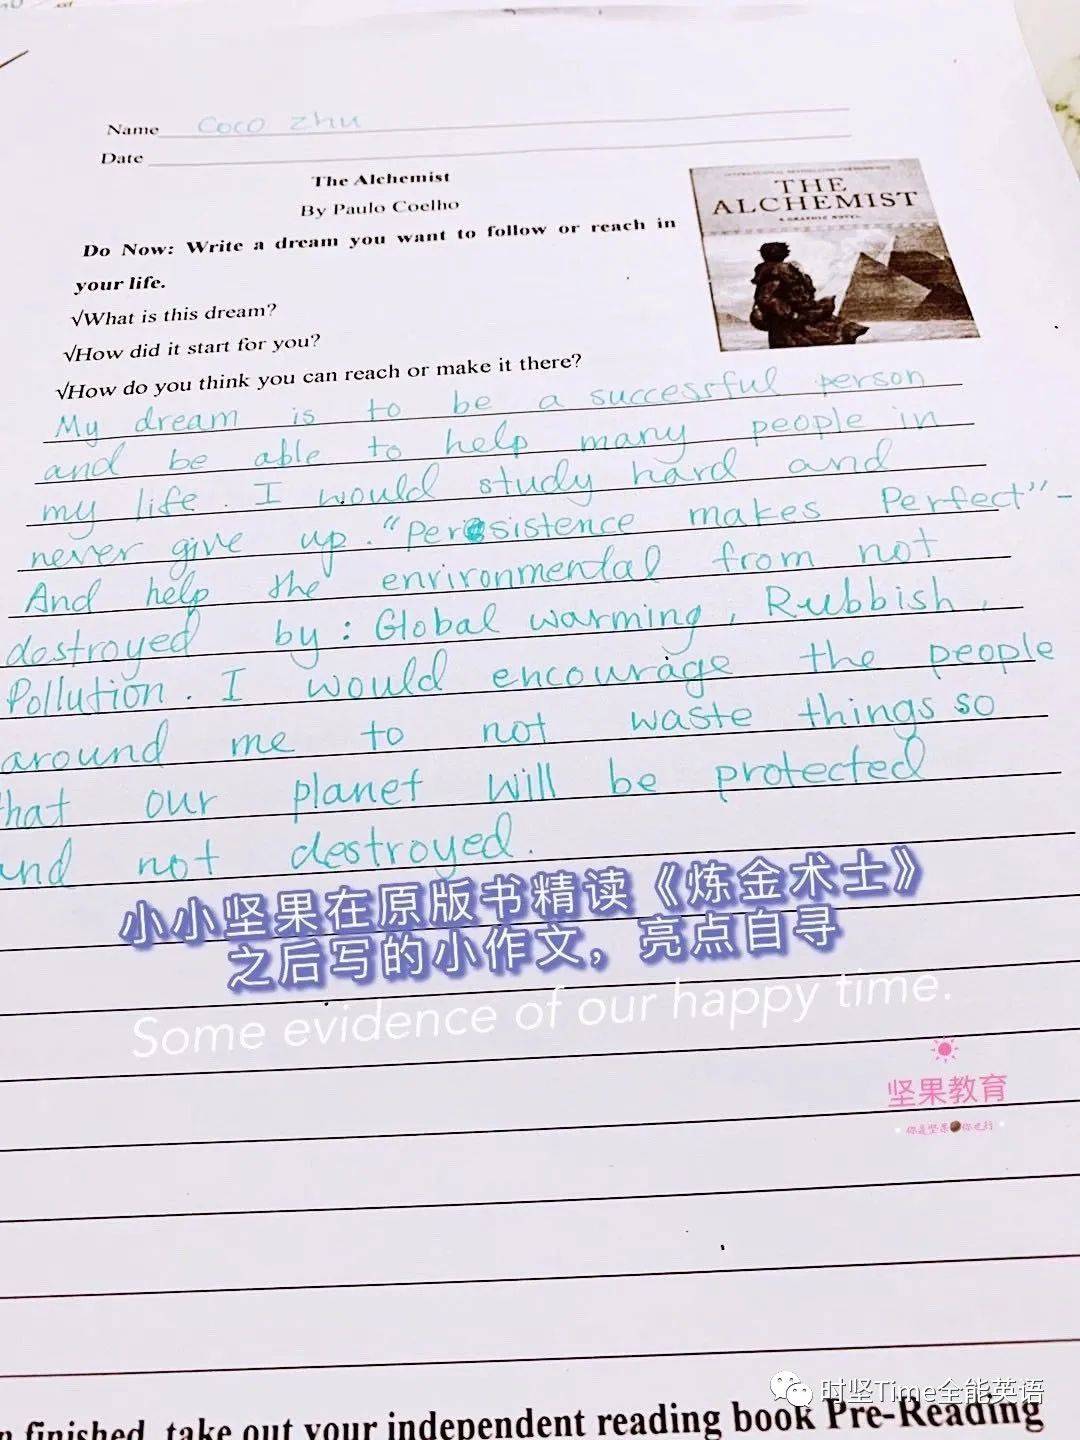 Name Coco Zhu
Date
The Alchemist
By Paulo Coelho
Do Now: Write a dream you want to follow or reach in
your life.
√What is this dream?
√How did it start for you?
√How do you think you can reach or make it there?
THE
ALCHEMIST
A GRAPHIC NOVEL
My dream is to be a successful person
and be able to help many people in
my life. I would study hard and
never give up. "Persistence makes Perfect"-
And help the environmental from not
destroyed by: Global warming, Rubbish,
Pollution. I would encourage the people
around me to not waste things so
that our planet will be protected
and not destroyed.
小小坚果在原版书精读《炼金术士》
之后写的小作文，亮点自寻
Some evidence of our happy time.
坚果教育
你是坚果 你也行
时坚Time全能英语
n finished, take out your independent reading book Pre-Reading